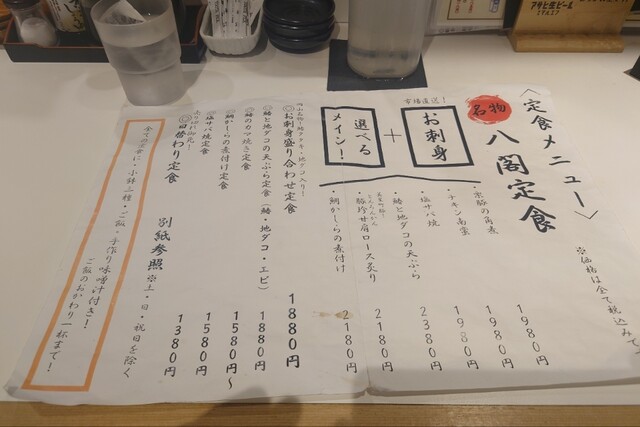 〈定食メニュー〉
※価格は全て税込みです
名物
八閣定食
市場直送!
お刺身
＋
選べる
メイン!
・京豚の角煮 1980円
・チキン南蛮 1980円
・塩サバ焼 1980円
・鰆と地ダコの天ぷら 2380円
肩ロース炙り 2180円
・鯛かしらの煮付け 2180円
岡山名物!鰆タタキ・地ダコ入り!
◎お刺身盛り合わせ定食 1880円
◎鰆と地ダコの天ぷら定食(鰆・地ダコ・エビ) 1880円
◎鰆のカマ焼き定食
◎鯛かしらの煮付け定食 1580円〜
◎塩サバ焼定食 1580円
売り切れ御免!
◎日替わり定食 別紙参照 ※土・日・祝日を除く 1380円
全ての定食に・小鉢三種・ご飯・手作り味噌汁付き!
ご飯のおかわり一杯まで!
アサヒ生ビール